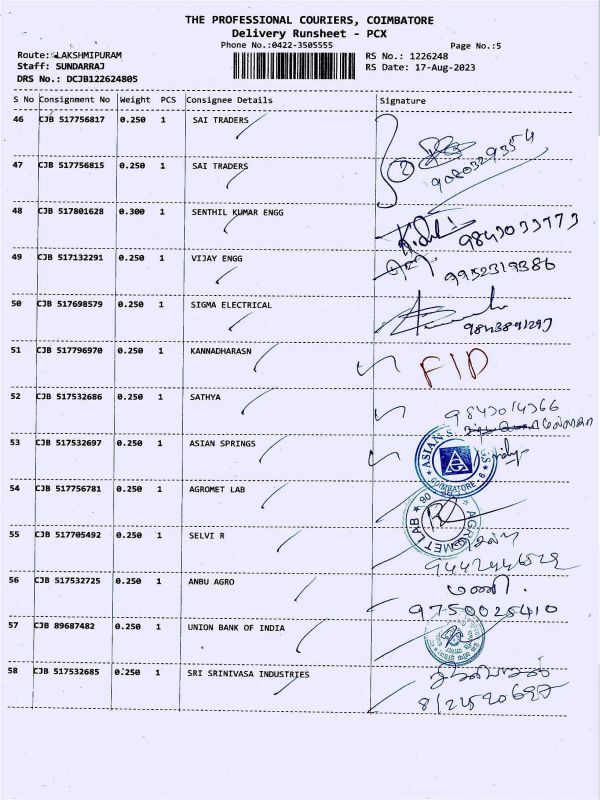 THE PROFESSIONAL COURIERS, COIMBATORE
Delivery Runsheet - PCX
Phone No.:0422-3505555 Page No.:5
Route: LAKSHMIPURAM RS No.: 1226248
Staff: SUNDARRAJ RS Date: 17-Aug-2023
DRS No.: DCJB122624805
S No Consignment No Weight PCS Consignee Details Signature
46 CJB 517756817 0.250 1 SAI TRADERS
47 CJB 517756815 0.250 1 SAI TRADERS
48 CJB 517801628 0.300 1 SENTHIL KUMAR ENGG 9843033773
49 CJB 517132291 0.250 1 VIJAY ENGG 9952319386
50 CJB 517698579 0.250 1 SIGMA ELECTRICAL
51 CJB 517796970 0.250 1 KANNADHARASN F/D
52 CJB 517532686 0.250 1 SATHYA 9843014366
53 CJB 517532697 0.250 1 ASIAN SPRINGS ASIAN SPRINGS COIMBATORE - 9
54 CJB 517756781 0.250 1 AGROMET LAB AGROMET LAB
55 CJB 517705492 0.250 1 SELVI R
56 CJB 517532725 0.250 1 ANBU AGRO மணி. 9750025410
57 CJB 89687482 0.250 1 UNION BANK OF INDIA
58 CJB 517532685 0.250 1 SRI SRINIVASA INDUSTRIES